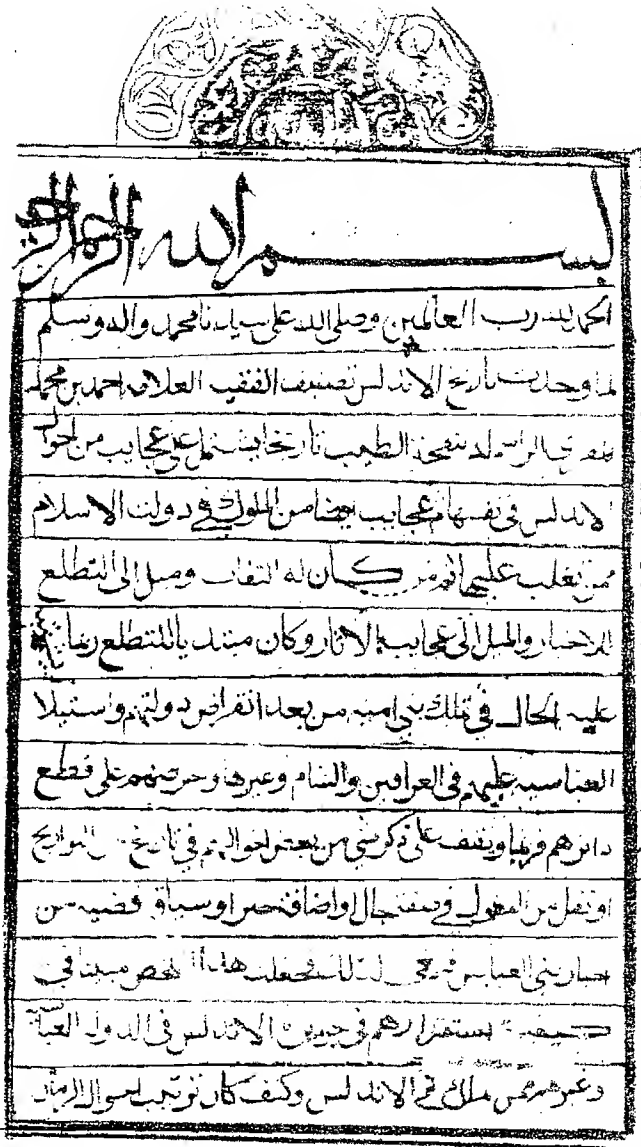 بسم الله الرحمن الرحيم
الحمد لله رب العالمين وصلى الله على سيدنا محمد واله وسلم
لما وجدت تاريخ الاندلس تصنيف الفقيه العلامه احمد بن محمد
الطيب تاريخا يشتمل على عجايب من احوال
الاندلس في نفسها وعجايب من الملوك في دولت الاسلام
ممن تغلب عليها فمن كان له التفات وميل الى التطلع
للاخبار والميل الى عجايب الاثار وكان مبتديا للتطلع ربما
عليه الحال في تملك بني اميه من بعد انقراض دولتهم واستيلا
العباسيه عليهم في العراقين والشام وغيرها وحرصهم على قطع
دابرهم فربما ويقف على ذكر شي من بعض احوالهم في تاريخ من التواريخ
او نقل من في جال او اضافة او سياق قضيه من
اخبار بني العباس فجعلت هذا الملخص مبينا في
استقرارهم في جزيرة الاندلس في الدوله العباسيه
وغيرهم ممن ملك في الاندلس وكيف كان